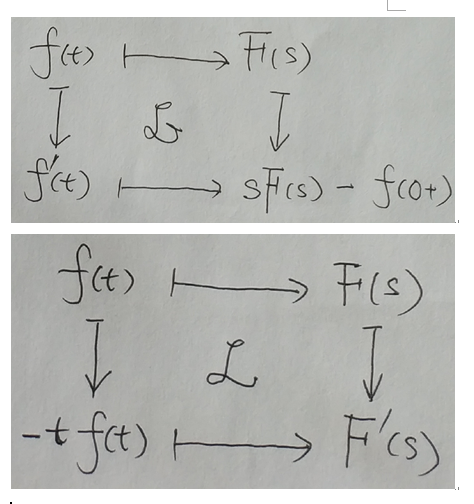 f(t) ⟼ F(s)
ℒ
f'(t) ⟼ sF(s) - f(0+)
f(t) ⟼ F(s)
ℒ
-t f(t) ⟼ F'(s)